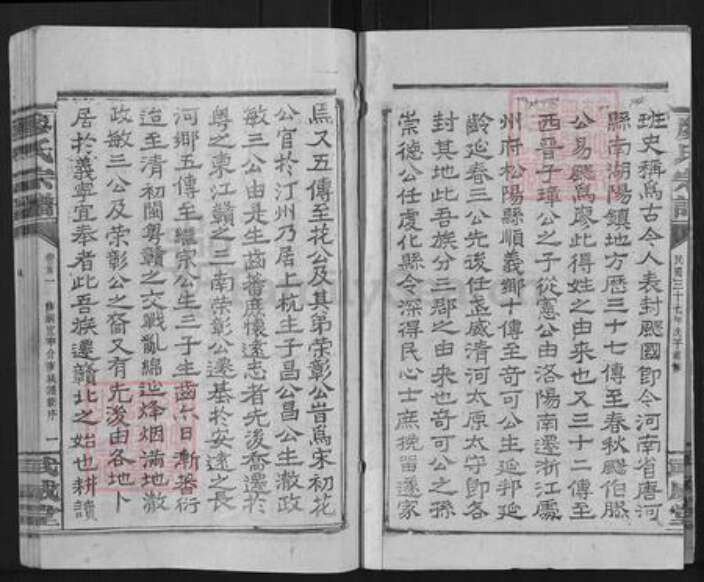 班史稱為古今人表封飂國即今河南省唐河
縣南湖陽鎮地方歷三十七傳至春秋飂伯勝
公易飂為廖此得姓之由來也又三十二傳至
西晉子璋公之子從憲公由洛陽南遷浙江處
州府松陽縣順義鄉十傳至奇可公生延邦延
齡延春三公先後任武威清河太原太守即各
封其地此吾族分三郡之由來也奇可公之孫
崇德公任虔化縣令深得民心士庶挽留遂家
焉又五傳至花公及其弟榮彰公皆為宋初花
公官於汀州乃居上杭生子昌公昌公生澈政
敏三公由是生齒蕃庶懷遠志者先後喬遷於
粵之東江贛之二南榮彰公遷基於安遠之長
河鄉五傳至繼宗公生三子生齒亦日漸蕃衍
迨至清初閩粵贛之交戰亂綿延烽烟滿地澈
政敏三公及榮彰公之裔又有先後由各地卜
居於義寧宜奉者此吾族遷贛北之始也耕讀
廖氏宗譜
卷首一
一
武威堂
廖氏宗譜
民國三十七年戊子
武威堂